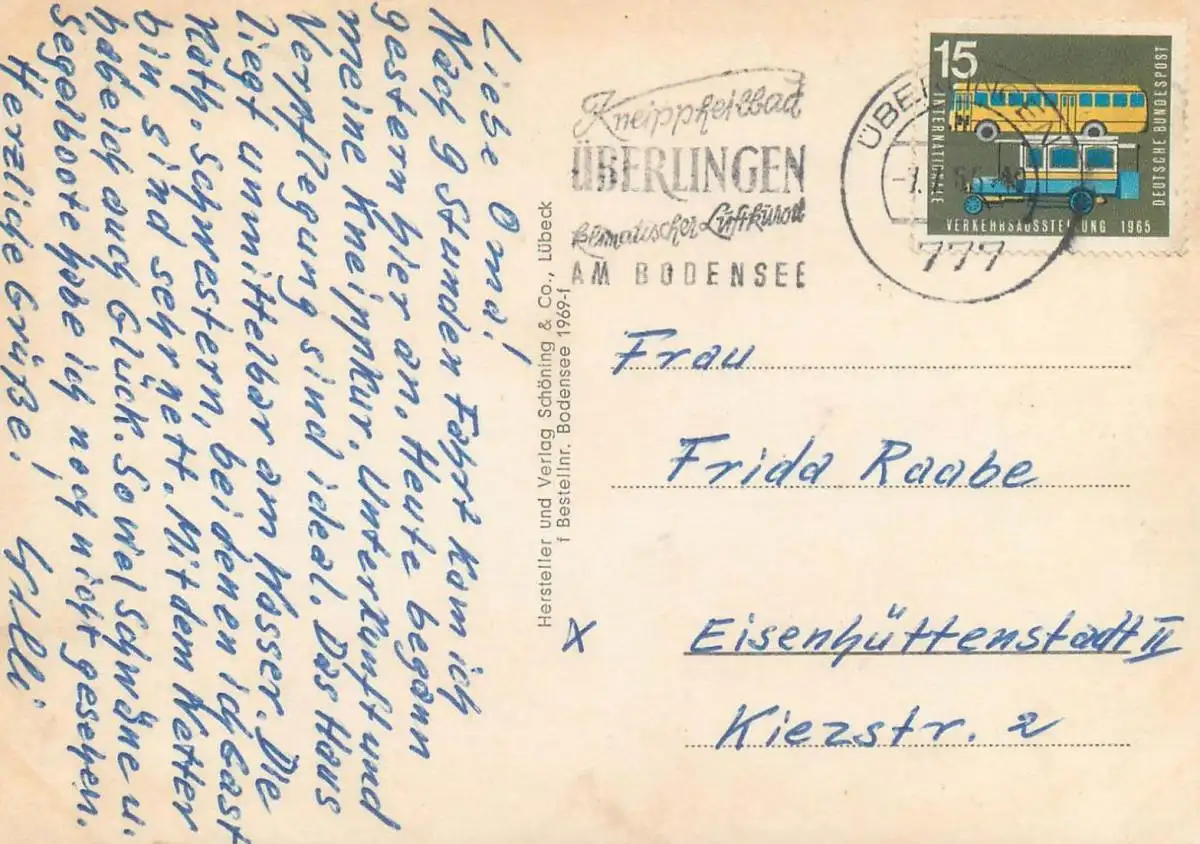 Liebe Oma!
Nach 9 Stunden Fahrt kam ich
gestern hier an. Heute begann
meine Kneippkur. Unterkunft und
Verpflegung sind ideal. Das Haus
liegt unmittelbar am Wasser. Die
Kath. Schwestern, bei denen ich Gast
bin sind sehr nett. Mit dem Wetter
habe ich auch Glück. So viel Schwäne u.
Segelboote habe ich noch nicht gesehen.
Herzliche Grüße!
Hersteller und Verlag Schöning & Co., Lübeck
f Bestellnr. Bodensee 1969-f
Kneippheilbad
ÜBERLINGEN
klimatischer Luftkurort
AM BODENSEE
ÜBERLINGEN
777
15
INTERNATIONALE
VERKEHRSAUSSTELLUNG 1965
DEUTSCHE BUNDESPOST
Frau
Frida Raabe
x
Eisenhüttenstadt II
Kiezstr. 2